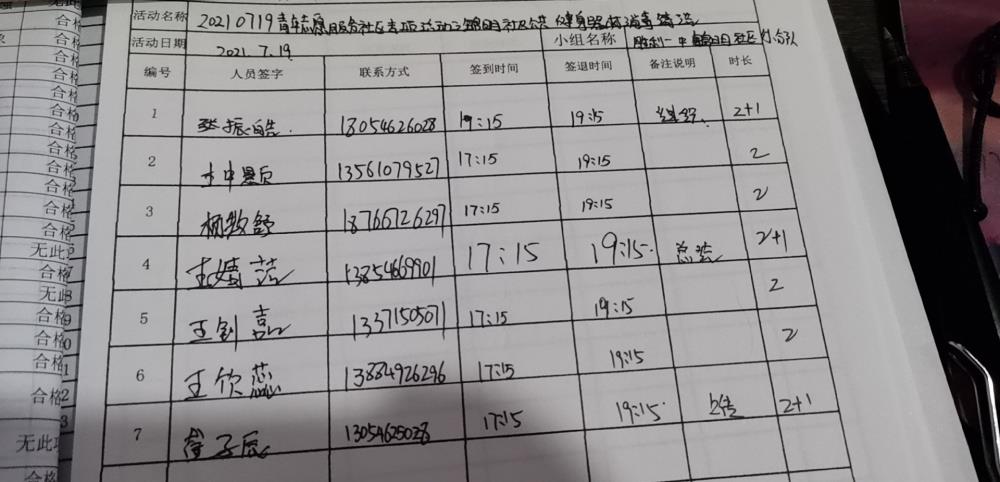 活动名称 20210719青年志愿服务社区专项活动之锦明社区公共健身器材消毒清洁
活动日期 2021.7.19 小组名称 胜利一中 社区小分队
编号 人员签字 联系方式 签到时间 签退时间 备注说明 时长
1 张振皓 13054626028 19:15 19:15 组织 2+1
2 13561079527 17:15 19:15 2
3 杨牧舒 18766726297 17:15 19:15 2
4 王婧茹 13854669901 17:15 19:15 总结 2+1
5 王钊嘉 13371505071 17:15 19:15 2
6 王欣蕊 13884926296 17:15 19:15 2
7 子辰 13054625028 17:15 19:15 2+1
合格
合格
合格
合格
合格
合格
合格
合格
合格
合格
合格
无此项
合格
无此
合格
合格
合格
合格
无此项
合格